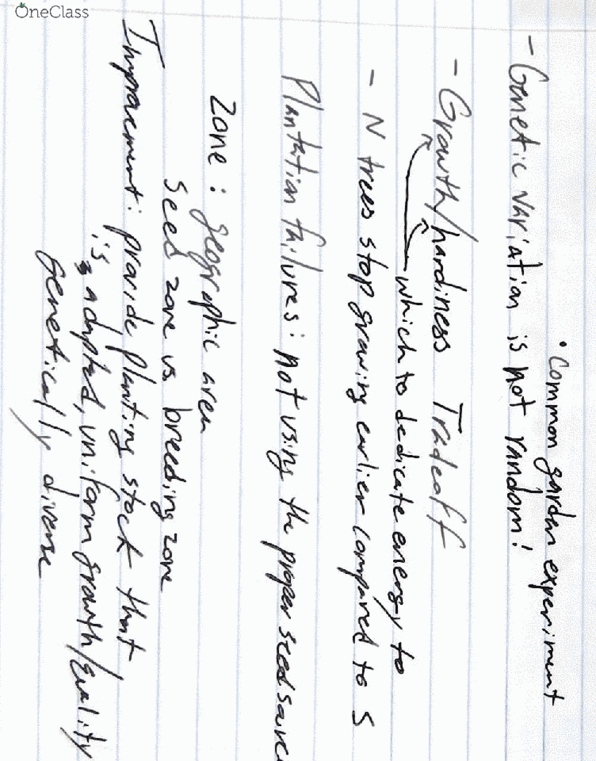 OneClass
• Common garden experiment
- Genetic variation is not random!
- Growth/hardiness Tradeoff
which to dedicate energy to
- N trees stop growing earlier compared to S
Plantation failures: not using the proper seed source
Zone: geographic area
seed zone vs. breeding zone
Improvement: provide planting stock that
is adapted, uniform growth/quality
genetically diverse